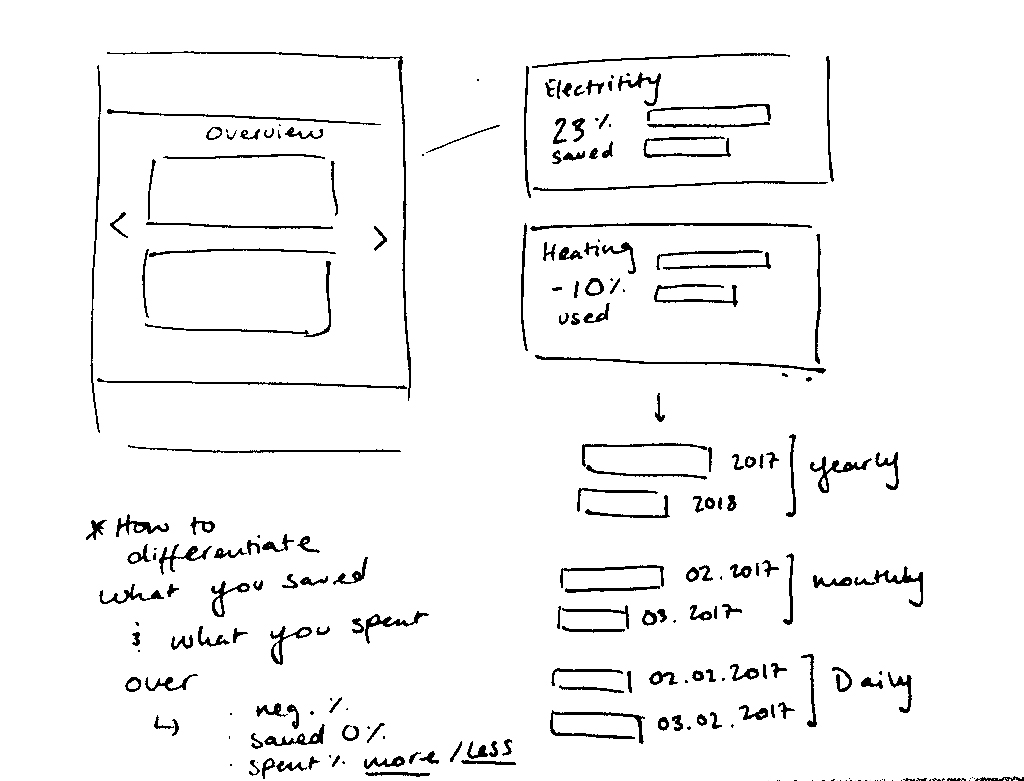 Overview
<
>
Electritity
23%
saved
Heating
-10%
used
2017
2018
yearly
02.2017
03.2017
monthly
02.02.2017
03.02.2017
Daily
* How to
differentiate
what you saved
& what you spent
over
↳ · neg. %
· saved 0%
· spent % more / less